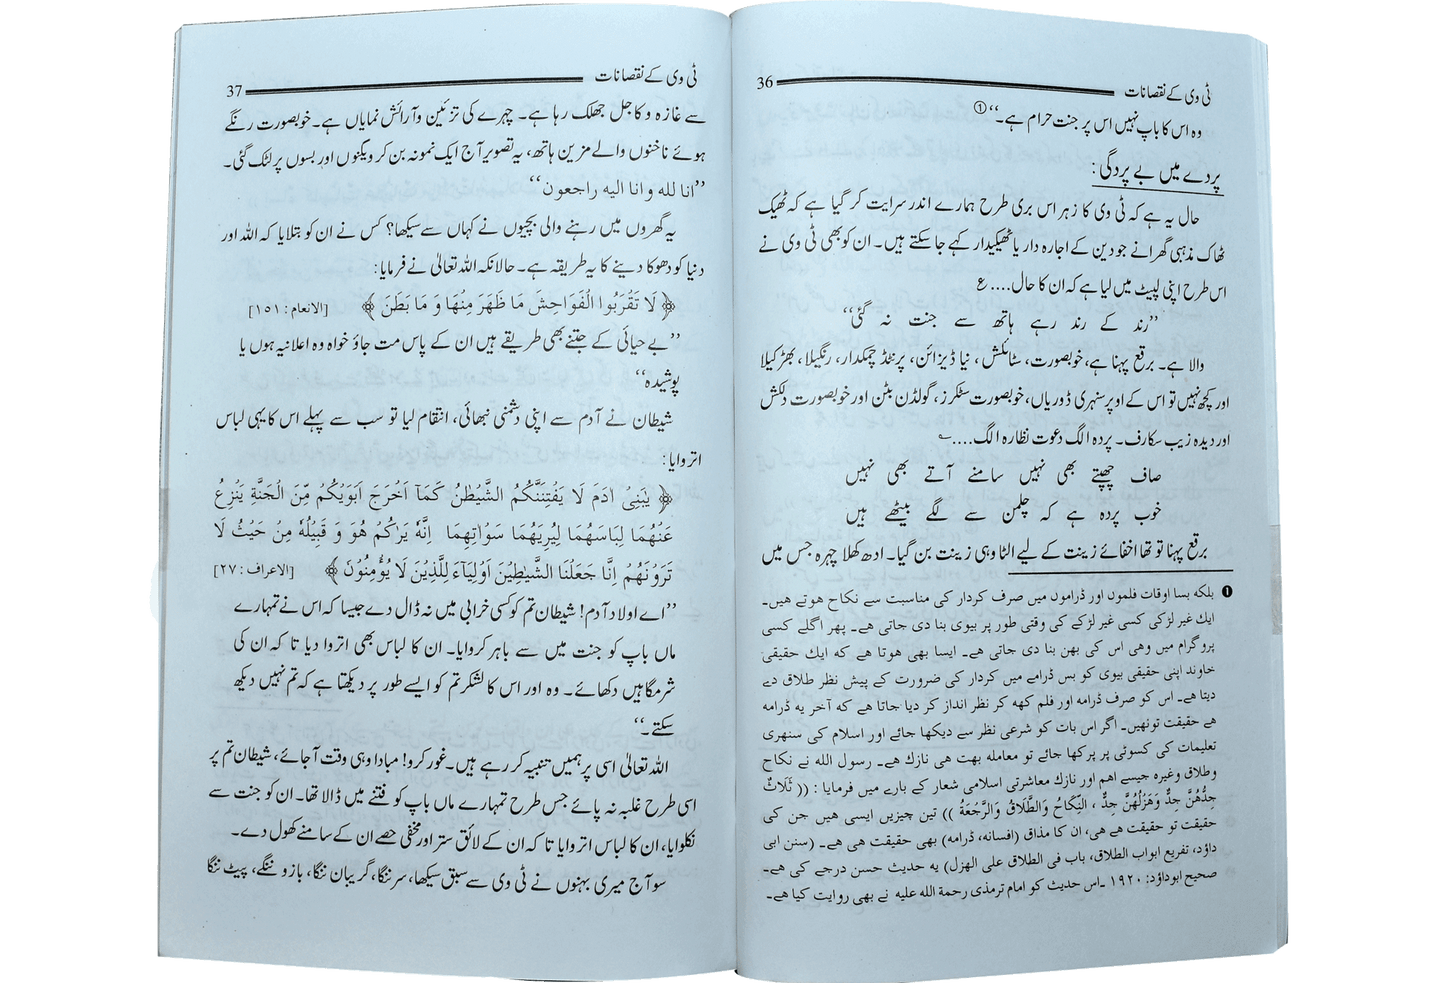 ٹی وی کے نقصانات 36
وہ اس کا باپ نہیں اس پر جنت حرام ہے۔‘‘ ①
پردے میں بے پردگی:
حال یہ ہے کہ ٹی وی کا زہر اس بری طرح ہمارے اندر سرایت کر گیا ہے کہ ٹھیک
ٹھاک مذہبی گھرانے جو دین کے اجارہ دار یا ٹھیکیدار کہے جا سکتے ہیں۔ ان کو بھی ٹی وی نے
اس طرح اپنی لپیٹ میں لیا ہے کہ ان کا حال.... ع
’’رند کے رند رہے ہاتھ سے جنت نہ گئی‘‘
والا ہے۔ برقع پہنا ہے، خوبصورت، سٹائلش ، نیا ڈیزائن، پرنٹڈ چمکدار، رنگیلا، بھڑکیلا
اور کچھ نہیں تو اس کے اوپر سنہری ڈوریاں، خوبصورت سٹکرز، گولڈن بٹن اور خوبصورت دلکش
اور دیدہ زیب سکارف۔ پردہ الگ دعوت نظارہ الگ....؎
صاف چھپتے بھی نہیں سامنے آتے بھی نہیں
خوب پردہ ہے کہ چلمن سے لگے بیٹھے ہیں
برقع پہنا تو تھا اخفائے زینت کے لیے الٹا وہی زینت بن گیا۔ ادھ کھلا چہرہ جس میں
❶ بلکہ بسا اوقات فلموں اور ڈراموں میں صرف کردار کی مناسبت سے نکاح ہوتے ہیں۔
ایک غیر لڑکی کسی غیر لڑکے کی وقتی طور پر بیوی بنا دی جاتی ہے۔ پھر اگلے کسی
پروگرام میں وہی اس کی بہن بنا دی جاتی ہے۔ ایسا بھی ہوتا ہے کہ ایک حقیقی
خاوند اپنی حقیقی بیوی کو بس ڈرامے میں کردار کی ضرورت کے پیش نظر طلاق دے
دیتا ہے۔ اس کو صرف ڈرامہ اور فلم کہہ کر نظر انداز کر دیا جاتا ہے کہ آخر یہ ڈرامہ
ہے حقیقت تو نہیں۔ اگر اس بات کو شرعی نظر سے دیکھا جائے اور اسلام کی سنہری
تعلیمات کی کسوٹی پر پرکھا جائے تو معاملہ بہت ہی نازک ہے۔ رسول اللہ نے نکاح
وطلاق وغیرہ جیسے اہم اور نازک معاشرتی اسلامی شعار کے بارے میں فرمایا : (( ثَلَاثٌ
جِدُّهُنَّ جِدٌّ وَهَزْلُهُنَّ جِدٌّ ، النِّكَاحُ وَالطَّلَاقُ وَالرَّجْعَةُ )) تین چیزیں ایسی ہیں جن کی
حقیقت تو حقیقت ہے ہی، ان کا مذاق (افسانہ، ڈرامہ) بھی حقیقت ہی ہے۔ (سنن ابی
داؤد، تفریع ابواب الطلاق، باب فی الطلاق علی الھزل) یہ حدیث حسن درجے کی ہے۔
صحیح ابوداؤد: ۱۹۲۰ ۔اس حدیث کو امام ترمذی رحمة الله علیہ نے بھی روایت کیا ہے۔
ٹی وی کے نقصانات 37
سے غازہ و کاجل جھلک رہا ہے۔ چہرے کی تزئین و آرائش نمایاں ہے۔ خوبصورت رنگے
ہوئے ناخنوں والے مزین ہاتھ، یہ تصویر آج ایک نمونہ بن کر ویگنوں اور بسوں پر لٹک گئی۔
’’انا لله و انا اليه راجعون‘‘
یہ گھروں میں رہنے والی بچیوں نے کہاں سے سیکھا؟ کس نے ان کو بتلایا کہ اللہ اور
دنیا کو دھوکا دینے کا یہ طریقہ ہے۔ حالانکہ اللہ تعالیٰ نے فرمایا:
﴿ لَا تَقْرَبُوا الْفَوَاحِشَ مَا ظَهَرَ مِنْهَا وَ مَا بَطَنَ ﴾ [الانعام : ۱۵۱]
’’بے حیائی کے جتنے بھی طریقے ہیں ان کے پاس مت جاؤ خواہ وہ اعلانیہ ہوں یا
پوشیدہ‘‘
شیطان نے آدم سے اپنی دشمنی نبھائی، انتقام لیا تو سب سے پہلے اس کا یہی لباس
اتروایا:
﴿ يٰبَنِىْ اٰدَمَ لَا يَفْتِنَنَّكُمُ الشَّيْطٰنُ كَمَآ اَخْرَجَ اَبَوَيْكُمْ مِّنَ الْجَنَّةِ يَنْزِعُ
عَنْهُمَا لِبَاسَهُمَا لِيُرِيَهُمَا سَوْاٰتِهِمَا اِنَّهٗ يَرٰىكُمْ هُوَ وَ قَبِيْلُهٗ مِنْ حَيْثُ لَا
تَرَوْنَهُمْ اِنَّا جَعَلْنَا الشَّيٰطِيْنَ اَوْلِيَآءَ لِلَّذِيْنَ لَا يُؤْمِنُوْنَ ﴾ [الاعراف : ۲۷]
’’اے اولاد آدم! شیطان تم کو کسی خرابی میں نہ ڈال دے جیسا کہ اس نے تمہارے
ماں باپ کو جنت میں سے باہر کروایا۔ ان کا لباس بھی اتروا دیا تا کہ ان کی
شرمگاہیں دکھائے۔ وہ اور اس کا لشکر تم کو ایسے طور پر دیکھتا ہے کہ تم نہیں دیکھ
سکتے۔‘‘
اللہ تعالیٰ اسی پر ہمیں تنبیہ کر رہے ہیں۔ غور کرو! مبادا وہی وقت آجائے، شیطان تم پر
اسی طرح غلبہ نہ پائے جس طرح تمہارے ماں باپ کو فتنے میں ڈالا تھا۔ ان کو جنت سے
نکلوایا، ان کا لباس اتروایا تا کہ ان کے لائق ستر اور مخفی حصے ان کے سامنے کھول دے۔
سو آج میری بہنوں نے ٹی وی سے سبق سیکھا، سر ننگا، گریبان ننگا، بازو ننگے، پیٹ ننگا